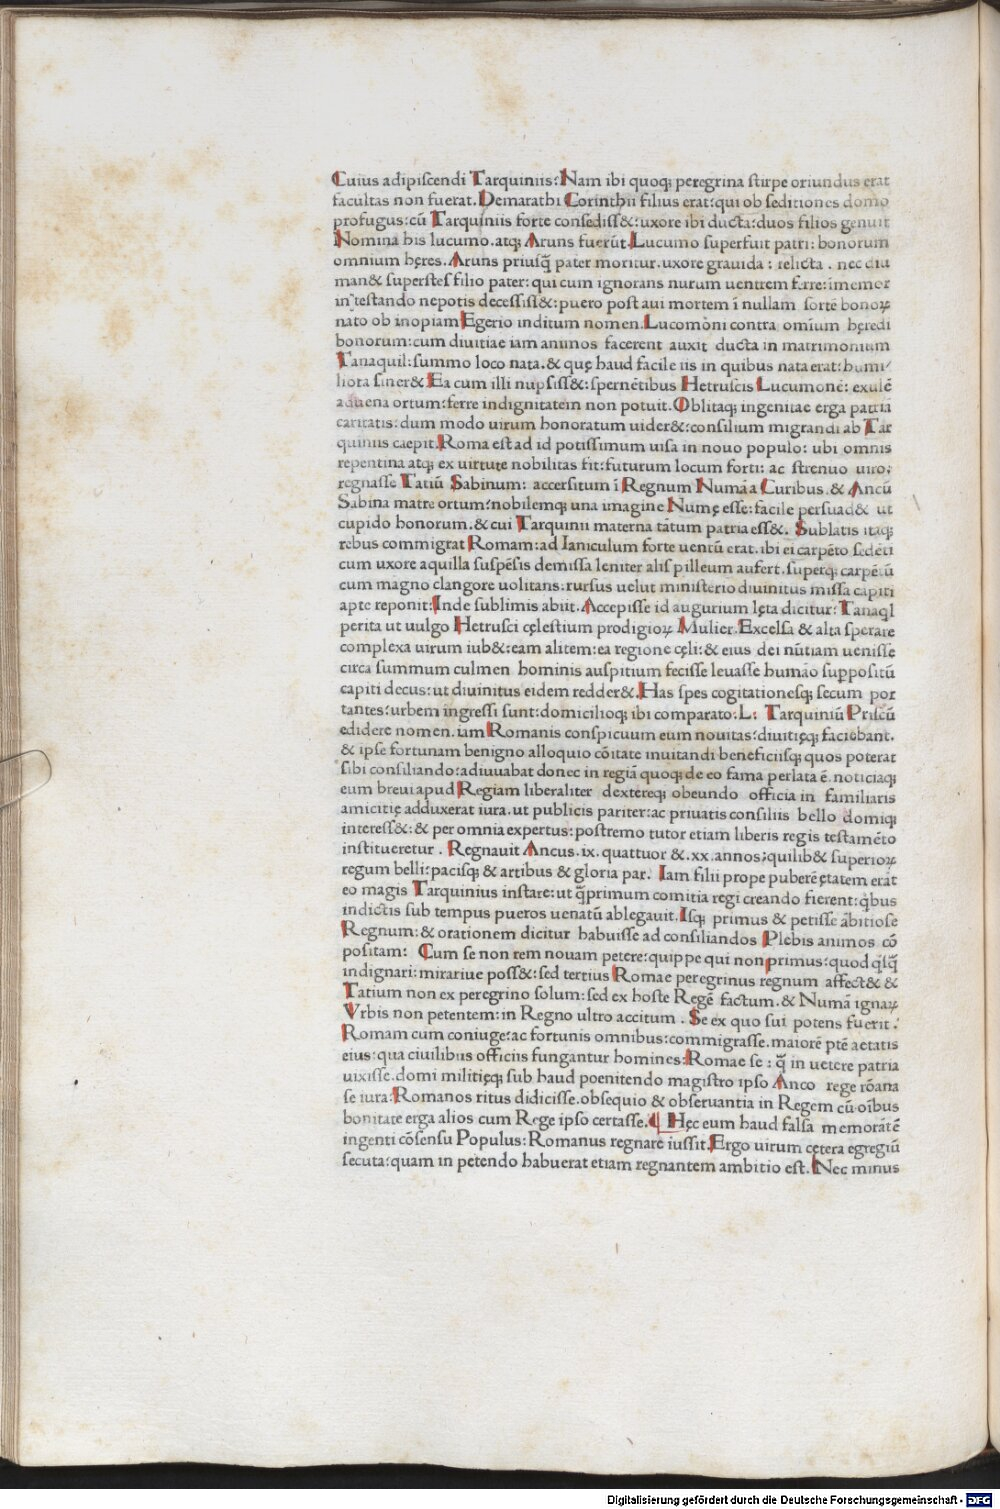 Cuius adipiscendi Tarquiniis: Nam ibi quoq; peregrina stirpe oriundus erat
facultas non fuerat. Demarathi Corinthii filius erat: qui ob seditiones domo
profugus: cū Tarquiniis forte consediss&: uxore ibi ducta: duos filios genuit
Nomina his lucumo. atq; Aruns fuerūt. Lucumo superfuit patri: bonorum
omnium hęres. Aruns priusq̄ pater moritur. uxore grauida: relicta. nec diu
man& superstes filio pater: qui cum ignorans nurum uentrem ferre: īmemor
in testando nepotis decessiss&: puero post aui mortem ī nullam sortē bonoꝝ
nato ob inopiam Egerio inditum nomen. Lucomoni contra omīum hęredi
bonorum: cum diuitiae iam animos facerent auxit ducta in matrimonium
Tanaquil: summo loco nata. & quę haud facile iis in quibus nata erat: humi/
liora siner& Ea cum illi nupsiss&: spernētibus Hetruscis Lucumonē: exulē
aduena ortum: ferre indignitatem non potuit. Oblitaq; ingenitae erga patria
caritatis: dum modo uirum honoratum uider&: consilium migrandi ab Tar
quiniis caepit. Roma est ad id potissimum uisa in nouo populo: ubi omnis
repentina atq; ex uirtute nobilitas fit: futurum locum forti: ac strenuo uiro:
regnasse Tatiū Sabinum: accersitum ī Regnum Numā a Curibus. & Ancū
Sabina matre ortum: nobilemq; una imagine Numę esse: facile persuad& ut
cupido honorum. & cui Tarquinii materna tātum patria ess&. Sublatis itaq;
rebus commigrat Romam: ad Ianiculum forte uentū erat. ibi ei carpēto sedēti
cum uxore aquilla suspēsis demissa leniter alis pilleum aufert. superq; carpētū
cum magno clangore uolitans: rursus uelut ministerio diuinitus missa capiti
apte reponit: Inde sublimis abiit. Accepisse id augurium lęta dicitur: Tanaql
perita ut uulgo Hetrusci cęlestium prodigioꝝ Mulier. Excelsa & alta sperare
complexa uirum iub&: eam alitem: ea regione cęli: & eius dei nūtiam uenisse
circa summum culmen hominis auspitium fecisse leuasse humāo suppositū
capiti decus: ut diuinitus eidem redder&. Has spes cogitationesq; secum por
tantes: urbem ingressi sunt: domicilioq; ibi comparato: L: Tarquiniū Priscū
edidere nomen. iam Romanis conspicuum eum nouitas: diuitięq; faciebant.
& ipse fortunam benigno alloquio cōitate inuitandi beneficiisq; quos poterat
sibi consiliando: adiuuabat donec in regiā quoq; de eo fama perlata ē. noticiaq;
eum breui apud Regiam liberaliter dextereq; obeundo officia in familiaris
amicitię adduxerat iura. ut publicis pariter: ac priuatis consiliis bello domiq;
interess&: & per omnia expertus: postremo tutor etiam liberis regis testamēto
institueretur. Regnauit Ancus. ix. quattuor & .xx. annos; quilib& superioꝝ
regum belli: pacisq; & artibus & gloria par. Iam filii prope puberē ętatem erāt
eo magis Tarquinius instare: ut q̄primum comitia regi creando fierent: qbus
indictis sub tempus pueros uenatū ablegauit. Isq; primus & petisse ābitiose
Regnum: & orationem dicitur habuisse ad consiliandos Plebis animos cō
positam: Cum se non rem nouam petere: quippe qui non primus: quod qlq̄
indignari: mirariue poss&: sed tertius Romae peregrinus regnum affect& &
Tatium non ex peregrino solum: sed ex hoste Regē factum. & Numā ignaꝝ
Vrbis non petentem: in Regno ultro accitum. Se ex quo sui potens fuerit:
Romam cum coniuge: ac fortunis omnibus: commigrasse. maiorē ptē aetatis
eius: qua ciuilibus officiis fungantur homines: Romae se: q̄ in uetere patria
uixisse. domi militięq; sub haud poenitendo magistro ipso Anco rege rōana
se iura: Romanos ritus didicisse. obsequio & obseruantia in Regem cū oībus
bonitate erga alios cum Rege ipso certasse. ¶ Hęc eum haud falsa memorātē
ingenti cōsensu Populus: Romanus regnare iussit. Ergo uirum cętera egregiū
secuta: quam in petendo habuerat etiam regnantem ambitio est. Nec minus
Digitalisierung gefördert durch die Deutsche Forschungsgemeinschaft - DFG